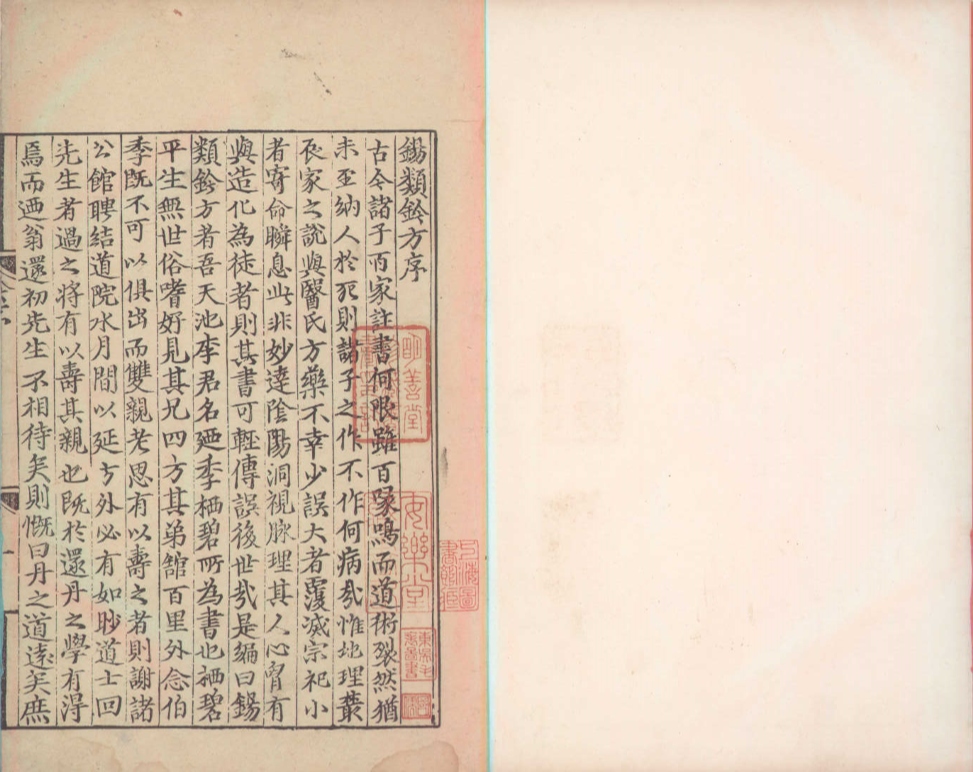 錫類鈐方序
古今諸子百家註書何限雖百喙鳴而道術裂然猶
未至納人於死則諸子之作不作何病哉惟地理叢
辰家之說與醫氏方藥不幸少誤大者覆滅宗祀小
者寄命瞬息此非妙達陰陽洞視脉理其人心胷有
與造化為徒者則其書可輕傳誤後世哉是編曰錫
類鈐方者吾天池李君名廼季栖碧所為書也栖碧
平生無世俗嗜好見其兄四方其弟舘百里外念伯
季既不可以俱出而雙親老思有以壽之者則謝諸
公館聘結道院水月間以延方外必有如眇道士回
先生者過之將有以壽其親也既於還丹之學有得
焉而迺翁還初先生不相待矣則慨曰丹之道遠矣庶
明善堂
安樂堂